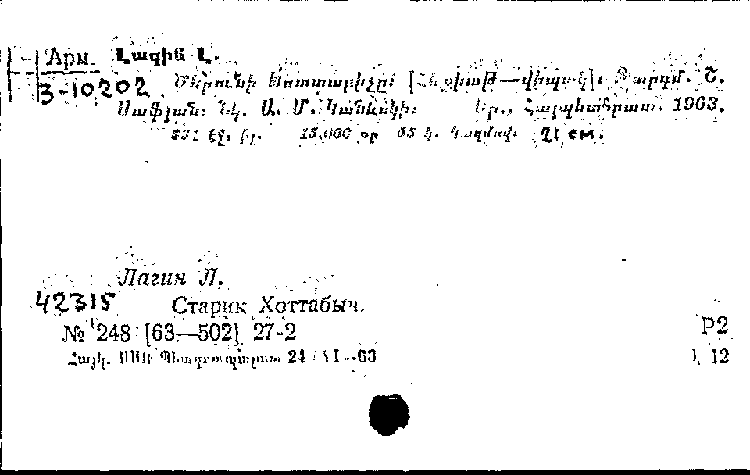 Арм. Լագին Լ.
3-10202 Ծերունի Խոտտաբիչը: [Հեքիաթ—վիպակ]: Թարգմ. Շ.
Սաֆյան: Նկ. Ա. Մ. Կանևսկի: Եր., Հայպետհրատ. 1963.
331 էջ. նկ. 15.000 օր 65 կ. Կազմով. 21 см.
Лагин Л.
42315 Старик Хоттабыч.
№ 248 [63—502] 27-2 Р2
Հայկ. ՍՍՌ Պետգրապալատ 24/XI-63 12